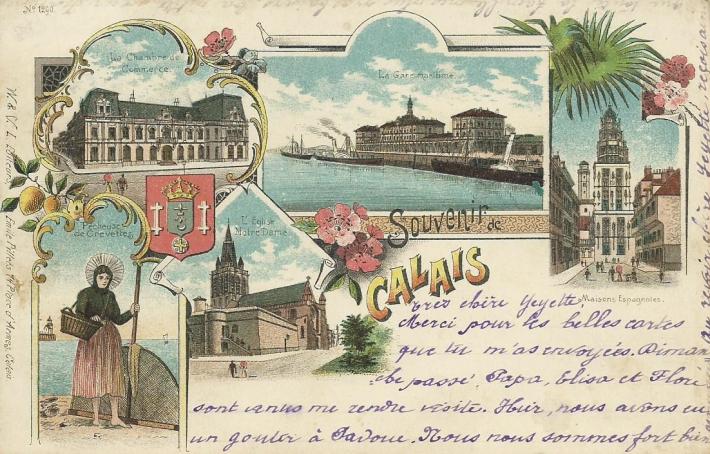 No 1290.
La Chambre de
Commerce.
La Gare maritime.
Pêcheuse
de Crevettes.
L'Eglise
Notre Dame.
Souvenir de
CALAIS
Maisons Espagnoles.
Très chère Yeyette
Merci pour les belles cartes
que tu m'as envoyées. Diman
che passé Papa, Elisa et Flore
sont venus me rendre visite. Hier, nous avons eu
un gouter à Padoue. Nous nous sommes fort bien
au revoir chère Yeyette reçois